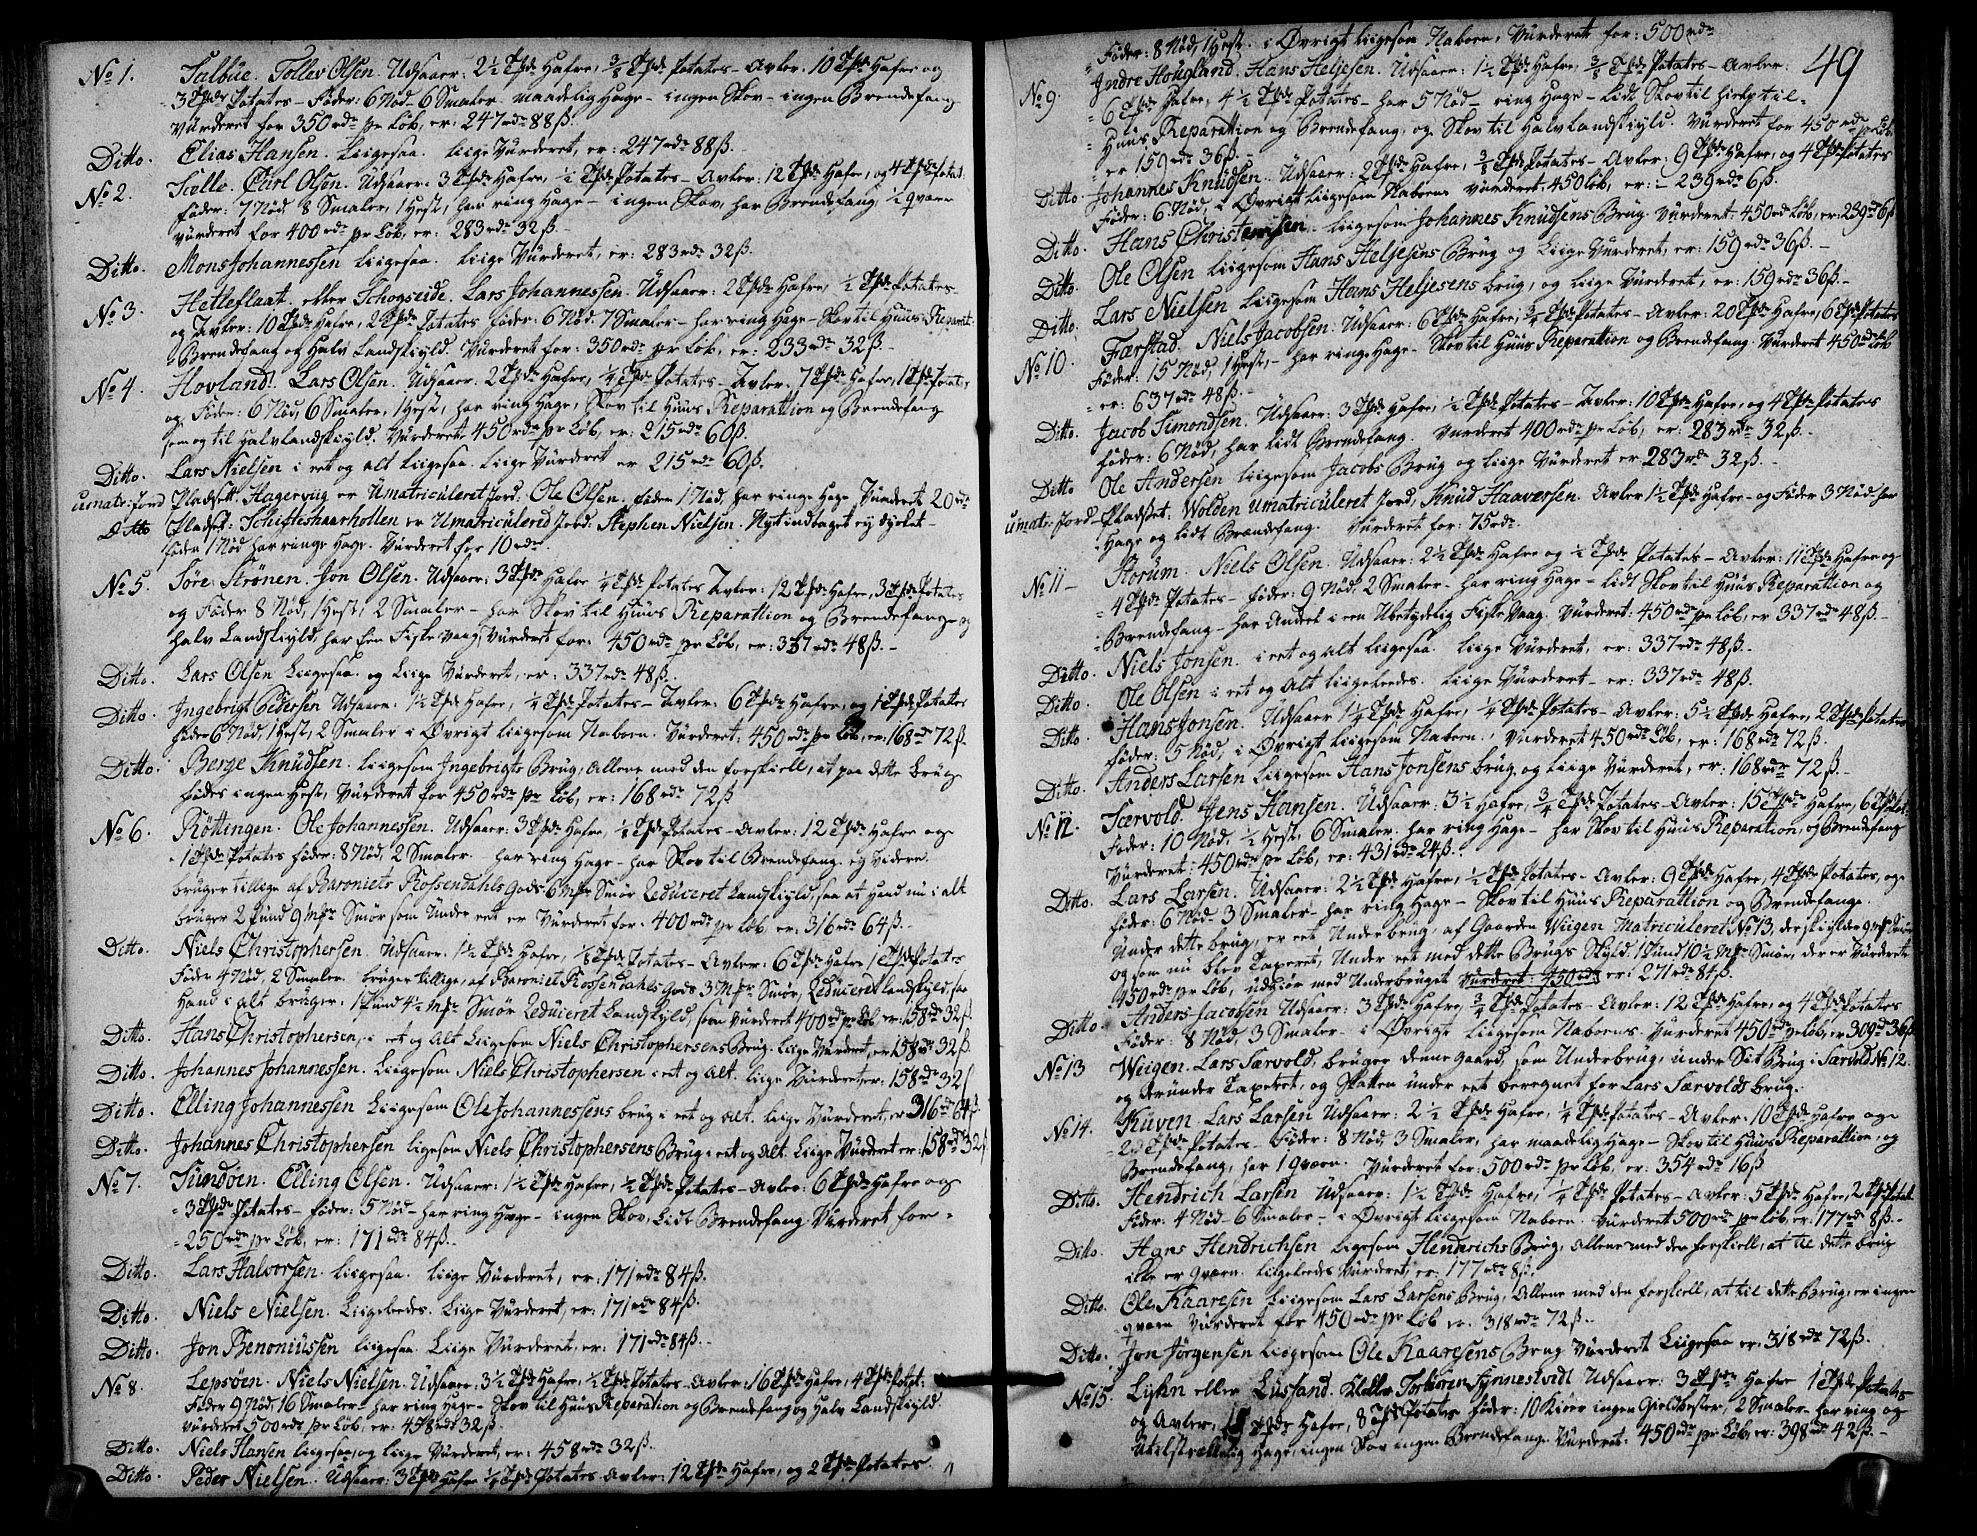 No 1. Salbue. Tollev Olsen. Udsaaer: 2½ Tpde Hafre, 3/8 Tpde Potates - Avler: 10 Tpde Hafre og
3 Tpde Potates - Føder: 6 Nød - 6 Smaler - maadelig Hage - ingen Skov - ingen Brendefang
Vurderet for 350 rdr pr Løb, er: 247 rdr 88 ß. -
Ditto. Elias Hansen. Liigesaa. liige Vurderet, er: 247 rdr 88 ß. -
No 2. Giert Olsen. Udsaaer: 3 Tpde Hafre, ½ Tpde Potates - Avler: 12 Tpde Hafre, og 4 Tpde Potat:
Føder: 7 Nød 8 Smaler, 1 Hest, har ring Hage - ingen Skov, har Brendefang, ½ qværn
Vurderet for 400 rdr pr Løb, er: 283 rdr 32 ß. -
Ditto. Mons Johannessen liigesaa. liige Vurderet, er: 283 rdr 32 ß. -
No 3. Hetleflaat, eller Schogseide. Lars Johannessen. Udsaaer: 2 Tpde Hafre, ½ Tpde Potates
og Avler: 10 Tpde Hafre, 2 Tpde Potates føder: 6 Nød 7 Smaler - har ring Hage - Skov til Huus Reparat:
Brendefang og Halv Landskyld. Vurderet for: 350 rdr pr Løb, er: 233 rdr 32 ß. -
No 4. Hovland. Lars Olsen. Udsaaer: 2 Tpde Hafre, ¼ Tpde Potates - Avler: 7 Tpde Hafre, 1 Tpde Potates
og Føder: 6 Nød, 6 Smaler, 1 Hest, har ring Hage, Skov til Huus Reparation og Brendefang
som og til Halv landskyld. Vurderet 450 rdr pr Løb, er: 215 rdr 60 ß.
Ditto. Lars Nielsen i eet og alt liigesaa. liige Vurderet er 215 rdr 60 ß.
umatr: Jord Pladset: Hagervig er Umatriculeret Jord: Ole Olsen. føder 1 Nød, har ringe Hage Vurderet 20 rdr
Ditto Pladset: Schifteshaarhollen er Umatriculered Jord. Stephen Nielsen. Nyt indtaget ey dyrket -
føder 1 Nød har ringe Hage. Vurderet for 10 rdr.
No 5. Søre Strønen. Jon Olsen. Udsaaer: 3 Tpde Hafre ¼ Tpde Potates Avler: 12 Tpde Hafre, 3 Tpde Potates
og Føder 8 Nød, 1 Hest, 2 Smaler - har Skov til Huus Reparation og Brendefang og
halv Landskyld, har Een Fiske vaag, Vurderet for: 450 rdr pr Løb, er: 337 rdr 48 ß. -
Ditto. Lars Olsen Liigesaa. og Liige Vurderet, er: 337 rdr 48 ß. -
Ditto. Ingebrigt Pedersen Udsaaer: 1½ Tpde Hafre, ¼ Tpde Potates - Avler: 6 Tpde Hafre, og 1 Tpde Potates
føder 6 Nød, 1 Hest, 2 Smaler i Øvrigt liigesom Naboen. Vurderet: 450 rdr pr Løb, er: 168 rdr 72 ß. -
Ditto. Berge Knudsen. liigesom Ingebrigts Brug, Allene med den forskiell, at paa dette brug
fødes ingen Hest, Vurderet for 450 rdr pr Løb, er: 168 rdr 72 ß.
No 6. Røttingen. Ole Johannessen. Udsaaer: 3 Tpde Hafre, ¼ Tpde Potates - Avler: 12 Tpde Hafre og
1 Tpde Potates føder: 8 Nød, 2 Smaler. har ring Hage - har Skov til Brendefang. ey Videre.
bruger tillige af Baroniets Rossendahls Gods 6 Mfr Smør Reduceret Landskyld, saa at Hand nu i alt
bruger 2 Pund 9 Mfr Smør som Under eet er Vurderet for: 400 rdr pr Løb er: 316 rdr 64 ß. -
Ditto. Niels Christophersen. Udsaaer: 1½ Tpde Hafre, 1/8 Tpde Potates - Avler: 6 Tpde Hafre, 1 Tpde Potates
Føder 4 Nød, 2 Smaler. bruger tillige, af Baroniet Rossendahls Gods 3 Mfr Smør, Reduceret landskyld, saa
Hand i alt bruger: 1 Pund 4½ Mfr Smør Reduceret Landskyld, som Vurderet 400 rdr pr Løb er: 158 rdr 32 ß.
Ditto. Hans Christophersen, i eet og Alt Liigesom Niels Christophersens Brug. liige Vurderet, er 158 rdr 32 ß.
Ditto. Johannes Johannessen. Liigesom Niels Christophersen i eet og Alt. liige Vurderet er: 158 rdr 32 ß
Ditto. Elling Johannessen Liigesom Ole Johannessens brug i eet og Alt. liige Vurderet, er 316 rdr 64 ß.
Ditto. Johannes Christophersen ligesom Niels Christophersens Brug i eet og Alt. liige Vurderet er: 158 rdr 32 ß
No 7. Sundøen. Elling Olsen. Udsaaer: 1½ Tpde Hafre, ½ Tpde Potates - Avler: 6 Tpde Hafre og
3 Tpde Potates - føder: 5 Nød - har ring Hage - ingen Skov, lidt Brendefang Vurderet for -
250 rdr pr Løb, er: 171 rdr 84 ß. -
Ditto. Lars Halvorsen. liigesaa. liige Vurderet, er: 171 rdr 84 ß. -
Ditto. Niels Nielsen. Liigeleedes. Liige Vurderet, er: 171 rdr 84 ß. -
Ditto. Jon Benoniussen liigesaa. Liige Vurderet, er: 171 rdr 84 ß. -
No 8. Lepsøen. Niels Nielsen. Udsaaer, 3½ Tpde Hafre, ½ Tpde Potates - Avler: 16 Tpde Hafre, 4 Tpde Potat:
Føder 9 Nød, 16 Smaler - har ring Hage - Skov til Huus Reparation og Brendefang og Halv Landskyld.
vurderet 500 rdr pr Løb, er: 458 rdr 32 ß. -
Ditto. Niels Hansen liigesaa og liige Vurderet, er: 458 rdr 32 ß. -
Ditto. Peder Nielsen. Udsaaer: 3 Tpde Hafre ¼ Tpde Potates Avler: 12 Tpde Hafre, og 2 Tpde Potates.
49
Føder: 8 Nød, 1 Hest, i Øvrigt liigesom Naboen, Vurderet for: 500 rdr
No 9. Indre Hougland. Hans Heljesen. Udsaaer: 1½ Tpde Hafre, 3/8 Tpde Potates - Avler:
6 Tpde Hafre, 4½ Tpde Potates - har 5 Nød - ring Hage - Lidt Skov til hielp til -
Huus Reparation og Brendefang, og Skov til Halv Landskyld. Vurderet for 450 rdr pr Løb
er 159 rdr 36 ß. -
Ditto. Johannes Knudsen. Udsaaer: 2 Tpde Hafre, 3/8 Tpde Potates - Avler: 9 Tpde Hafre, og 4 Tpde Potates
Føder: 6 Nød, i Øvrigt liigesom Naboens vurderet: 450 Løb, er: 239 rdr 6 ß.
Ditto. Hans Christensen. liigesom Johannes Knudsens Brug. Vurderet: 450 rdr Løb, er: 239 rdr 6 ß
Ditto. Ole Olsen liigesom Hans Heljesens Brug og Liige Vurderet, er: 159 rdr 36 ß. -
Ditto. Lars Nielsen liigesom Hans Heljesens brug, og liige Vurderet, er: 159 rdr 36 ß. -
No 10. Færstad. Niels Jacobsen. Udsaaer: 6 Tpde Hafre, ¾ Tpde Potates - Avler: 20 Tpde Hafre, 6 Tpde Potates
Føder: 15 Nød, 1 Hest, - har ringe Hage - Skov til Huus Reparation og Brendefang. Vurderet 450 rdr Løb
er: 637 rdr 48 ß. -
Ditto. Jacob Simondsen. Udsaaer: 3 Tpde Hafre, ½ Tpde Potates - Avler: 10 Tpde Hafre, og 4 Tpde Potates
føder: 6 Nød, har lidt Brendefang. Vurderet 400 rdr pr Løb, er: 283 rdr 32 ß. -
Ditto Ole Andersen liigesom Jacobs Brug og liige Vurderet er 283 rdr 32 ß. -
umatr: Jord Pladset: Wolden Umatriculeret Jord, Knud Haaversen. Avler 1½ Tpde Hafre - og Føder 3 Nød. har
Hage og lidt Brendefang. Vurderet for: 75 rdr.
No 11 - Storum. Niels Olsen. Udsaaer: 2½ Tpde Hafre og ½ Tpde Potates - Avler: 11 Tpde Hafre og
4 Tpde Potates - føder: 9 Nød, 2 Smaler - har ring Hage - lidt Skov til Huus Reparation og
Brendefang - Har Andeel i een Ubetydelig Fiske Vaag. Vurderet: 450 rdr pr Løb, er 337 rdr 48 ß. -
Ditto. Niels Jonsen. i eet og alt liigesaa. liige Vurderet, er: 337 rdr 48 ß. -
Ditto. Ole Olsen i eet og Alt liigeleedes. liige Vurderet - er: 337 rdr 48 ß.
Ditto. Hans Jonsen. Udsaaer 1¼ Tpde Hafre, ¼ Tpde Potates - Avler: 5½ Tpde Hafre, 2 Tpde Potates
føder: 5 Nød, i Øvrigt liigesom Naboen. Vurderet 450 rdr Løb, er: 168 rdr 72 ß.
Ditto. Anders Larsen liigesom Hans Jonsens brug og liige Vurderet, er: 168 rdr 72 ß. -
No 12. Særvold. Jens Hansen. Udsaaer: 3½ Hafre, ¾ Tpde Potates - Avler: 15 Tpde Hafre, 6 Tpde Pot:
Føder: 10 Nød, ½ Hest, 6 Smaler. har ring Hage - har Skov til Huus Reparation, og Brendefang
Vurderet: 450 rdr pr Løb, er: 431 rdr 24 ß. -
Ditto. Lars Larsen. Udsaaer: 2½ Tpde Hafre, ½ Tpde Potates - Avler: 9 Tpde Hafre, 4 Tpde Potates, og
føder: 6 Nød - 3 Smaler - har ring Hage - Skov til Huus Reparation og Brendefang.
Under dette brug, er eet Underbrug, af Gaarden Wiigen Matriculeret No 13, der skylder 9 Mfr Smør
og som nu blev Taxeret, Under eet med dette Brugs Skyld 1 Pund 10½ Mfr Smør, der er Vurderet
450 rdr pr Løb, udgiør med Underbruget Vurderet: 450 rdr er: 271 rdr 84 ß. -
Ditto. Anders Jacobsen Udsaaer: 3 Tpde Hafre, ¾ Tpde Potates - Avler: 12 Tpde Hafre, og 4 Tpde Potates
Føder: 8 Nød, 3 Smaler - i Øvrigt liigesom Naboens. Vurderet 450 rdr pr Løb, er 309 rdr 36 ß
No 13 Wiigen. Lars Særvold, bruger denne Gaard, som Underbrug, under Sit Brug i Særvold No 12.
og derunder Taxeret, og Skatten under eet beregnet for Lars Særvolds brug.
No 14. Kuven. Lars Larsen Udsaaer: 2½ Tpde Hafre, ¼ Tpde Potates - Avler: 10 Tpde Hafre og
2 Tpde Potates - Føder: 8 Nød, 3 Smaler, har maadelig Hage - Skov til Huus Reparation, og
Brendefang, har 1 qværn. Vurderet for: 500 rdr pr Løb, er: 354 rdr 16 ß
Ditto. Hendrich Larsen Udsaaer: 1½ Tpde Hafre, ¼ Tpde Potates - Avler: 5 Tpde Hafre, 2 Tpde Potat:
Føder: 4 Nød - 6 Smaler - i Øvrigt liigesom Naboen. Vurderet 500 rdr pr Løb, er: 177 rdr 8 ß. -
Ditto. Hans Hendrichsen liigesom Henderichs Brug, allene med den forskiell, at til dette brug
ikke er qværn. liigeleedes Vurderet, er: 177 rdr 8 ß.
Ditto. Ole Kaaresen liigesom Lars Larsens Brug, Allene med den forskiell, at til dette Brug, er ingen
qværn. Vurderet for 450 rdr pr Løb er: 318 rdr 72 ß. -
Ditto. Jon Jørgensen liigesom Ole Kaaresens Brug Vurderet Liigesaa er: 318 rdr 72 ß. -
No 15. Lyshn eller Lusland. Klokker Torbiørn Tynnestvedt Udsaaer: 3 Tpde Hafre 1 Tpde Potates
og Avler, Tpde Hafre, 8 Tpde Potates føder: 10 Kiøer ingen Gieldbester, 2 Smaler. har ring og
Utilstrekkelig Hage, ingen Skov ingen Brendefang. Vurderet: 450 rdr pr Løb, er: 398 rdr 42 ß. -